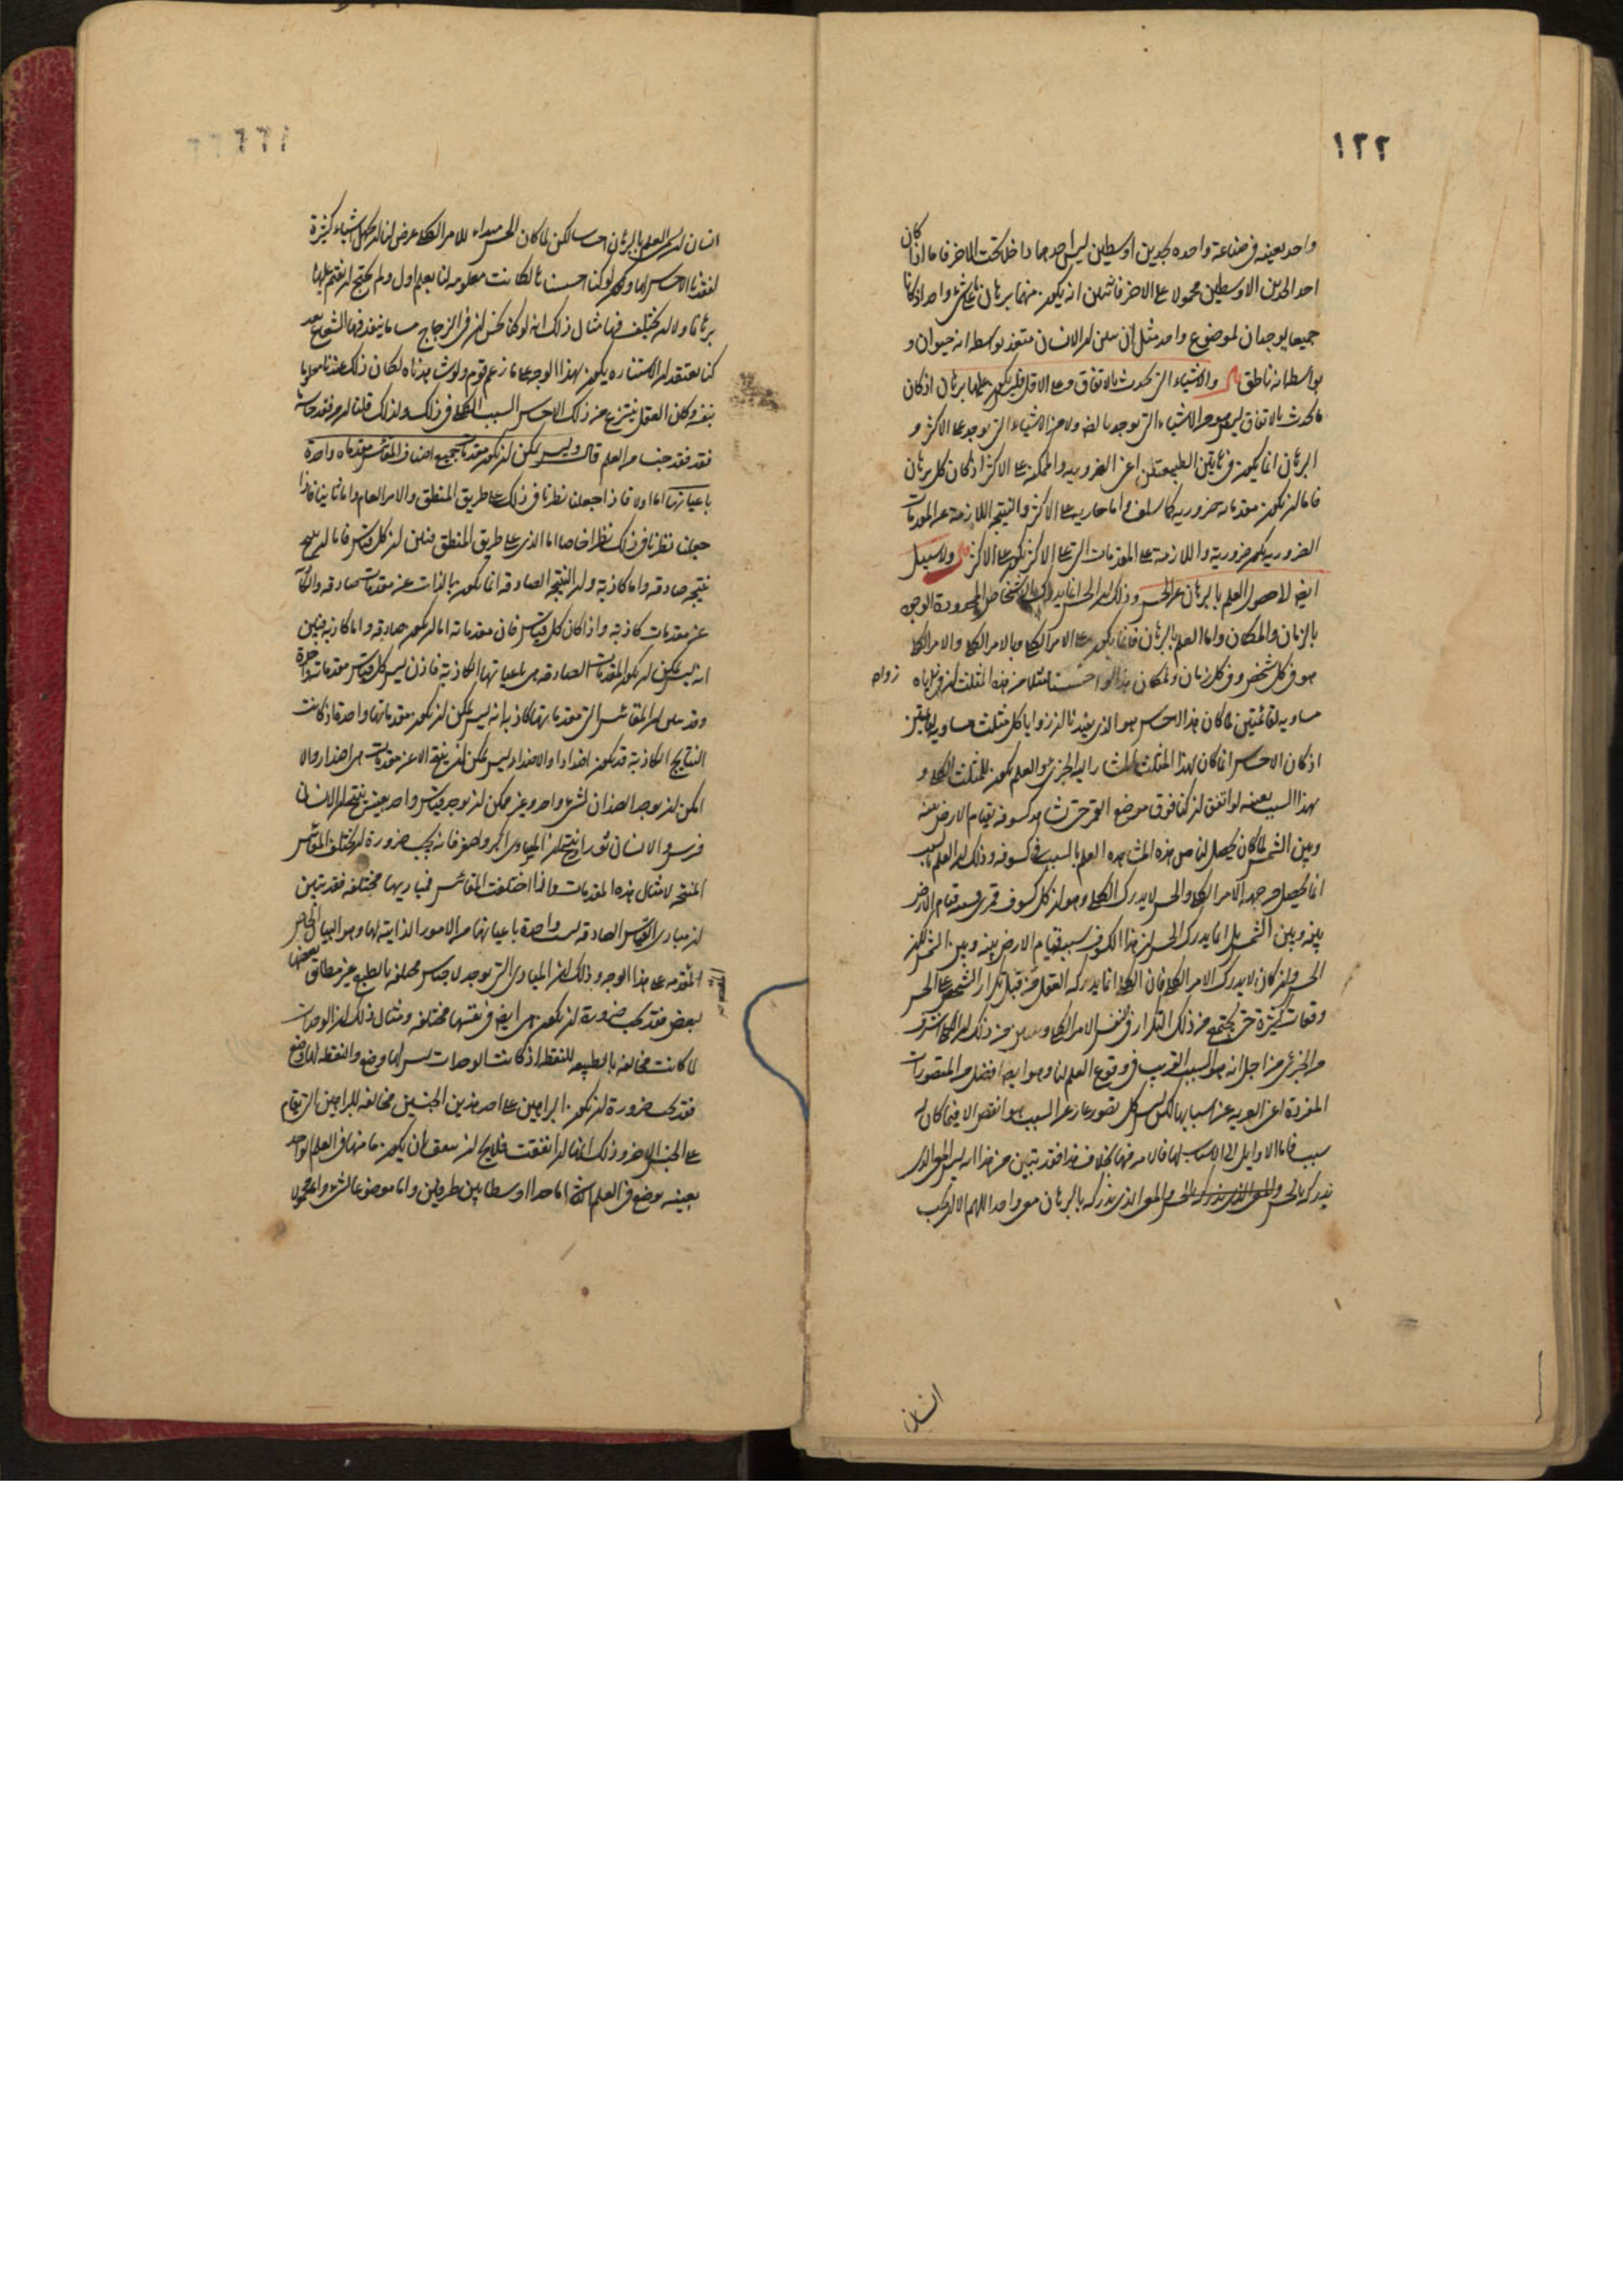 ١٢٢
واحد بعينه في صناعة واحده بحدين اوسطين ليس احدهما داخلا تحت الاخر فاما اذا كان
احد الحدين الاوسطين محمولا على الاخر فانه يمكن ان يكون منهما برهان على شيء واحد اذ كانا
جميعا يوجدان لموضوع واحد مثل ان يبين ان الانسان متغذ بواسطة انه حيوان و
بواسطة انه ناطق والاشياء التي تحدث بالاتفاق وعلى الاقل فليس يكون عليها برهان اذ كان
ما يحدث بالاتفاق ليس هو من الاشياء التي توجد باضطرار ولا من الاشياء التي توجد على الاكثر و
البرهان انما يكون في هاتين الطبيعتين اعني الضروريه والممكنه على الاكثر اذ كان كل برهان
فاما ان يكون مقدماته ضروريه كما سلف واما جاريه على الاكثر والنتيجه اللازمة عن المقدمات
الضروريه تكون ضرورية واللازمة عن المقدمات التي على الاكثر تكون على الاكثر ولا سبيل
ايضا لحصول العلم بالبرهان عن الحس وذلك ان الحس انما يدرك الاشخاص المحدودة الوجود
بالزمان والمكان واما العلم بالبرهان فانما يكون على الامر الكلي وبالامر الكلي والامر الكلي
هو في كل شخص وفي كل زمان ومكان فلو احسسنا مثلا من هذا المثلث ان زواياه
مساويه لقائمتين لما كان هذا الاحساس هو الذي يفيدنا ان زوايا كل مثلث مساويه لقائمتين
اذ كان الاحساس انما كان لهذا المثلث المشار اليه الجزئي والعلم يكون للمثلث الكلي و
بهذا السبب بعينه لو اتفق ان كنا فوق موضع القمر حتى نشاهد كسوفه بقيام الارض بينه
وبين الشمس لما كان يحصل لنا من هذه المشاهده العلم بالسبب في كسوفه وذلك ان العلم بالسبب
انما يحصل من جهة الامر الكلي والحس لا يدرك الكلي وهو ان كل كسوف قمري فسببه قيام الارض
بينه وبين الشمس بل انما يدرك الحس ان هذا الكسوف سببه قيام الارض بينه وبين الشمس لكن
الحس وان كان لا يدرك الامر الكلي فان الكلي انما يدركه العقل من قبل تكرار الشخص على الحس
وقعات كثيرة حتى يجتمع من ذلك التكرار في النفس الامر الكلي وتبين من ذلك ان الكلي اشرف
من الجزئي من اجل انه هو السبب القريب في وقوع العلم لنا وهو ايضا افضل من المتصورات
المفردة اعني العريه عن اسبابها لكن ليس كل تصور عار عن السبب هو انقص الا فيما كان له
سبب فاما الاوايل التي لا اسباب لها فالامر فيها بخلاف هذا فقد تبين من هذا انه ليس المعنى الذي
ندركه بالحس والمعنى الذي ندركه بالبرهان معنى واحدا اللهم الا ان يحب
انسان
انسان ان يسمي العلم بالبرهان احساسا لكن لما كان الحس مبداء للامر الكلي عرض لنا ان نجهل اشياء كثيرة
لفقدنا الاحساس لها وتكون لو كنا احسسناها لكانت معلومه لنا بعلم اول ولم نحتج ان نقيم عليها
برهانا ولا ان نختلف فيها مثال ذلك انه لو كنا نحس ان في الزجاج مساما ينفذ فيها الشعاع بعد
كنا نعتقد ان الاستناره يكون بهذا الوجه على ما زعم قوم ولو شاهدناه لكان ذلك عندنا معلوما
بنفسه وكان العقل ينتزع من ذلك الاحساس السبب الكلي في ذلك ولذلك قلنا ان من فقد حاسة
فقد فقد جنسا من العلم قال وليس يمكن ان يكون مقدمات جميع اصناف المقائيس مقدمات واحدة
باعيانها اما اولا فاذا جعلنا نظرنا في ذلك على طريق المنطق والامر العام واما ثانيا فاذا
جعلنا نظرنا في ذلك نظرا خاصا اما الذي على طريق المنطق فتبين ان كل قياس فاما ان ينتج
نتيجة صادقه واما كاذبة وان النتيجة الصادقه انما تكون بالذات عن مقدمات صادقه والكاذبه
عن مقدمات كاذبه واذا كان كل قياس فان مقدماته اما ان تكون صادقه واما كاذبه فبين
انه ليس يمكن ان يكون المقدمات الصادقه هي باعيانها الكاذبة فاذن ليس كل قياس مقدماته واحدة
وقد يبين ان المقائيس التي مقدماتها كاذبه انه ليس يمكن ان يكون مقدماتها واحدة اذ كانت
النتايج الكاذبة قد تكون اضدادا والاضداد ليس يمكن ان ينتج الا عن مقدمات هي اضداد والا
امكن ان يوجد الضدان لشيء واحد وغير ممكن ان يوجد قياس واحد بعينه ينتج ان الانسان
فرس والانسان ثور او ينتج ان المساوي اكبر واصغر فانه يجب ضرورة ان يختلف المقائيس
المنتجه لامثال هذه المقدمات واذا اختلفت المقائيس فمباديها مختلفه فقد تبين
ان مبادي القياس الصادقه ليست واحدة باعيانها من الامور الذاتية لها وهو البيان الخاص
المقدمه على هذا الوجه وذلك ان المبادي التي توجد لاجناس مختلفه بالطبع غير مطابق بعضها
لبعض فقد يجب ضرورة ان يكون هي ايضا في نفسها مختلفه ومثال ذلك ان الوحدات
لما كانت مخالفه بالطبيعه للنقط اذ كانت الوحدات ليس لها وضع والنقط لها وضع
فقد يجب ضرورة ان يكون البراهين على احد هذين الجنسين مخالفه للبراهين التي تقام
على الجنس الاخر وذلك انها ان اتفقت فليس يخلو ان يتفق بان يكون ما منها في العلم الواحد
بعينه يوضع في العلم الثاني اما حدا اوسطا بين طرفين واما موضوعا لشيء واما محمولا